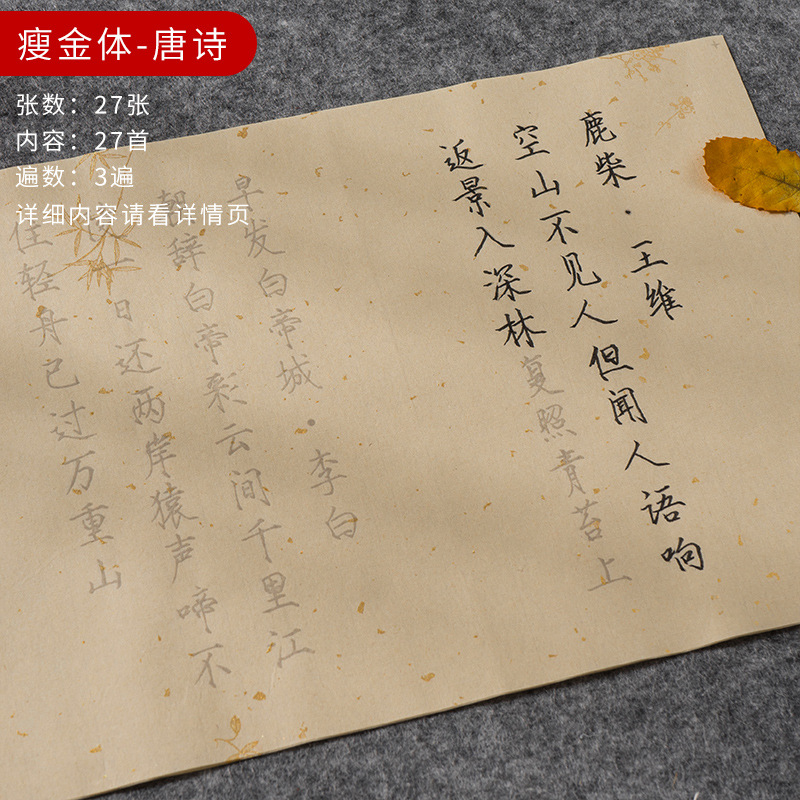 瘦金体-唐诗
张数：27张
内容：27首
遍数：3遍
详细内容请看详情页
鹿柴·王维
空山不见人但闻人语响
返景入深林复照青苔上
早发白帝城·李白
朝辞白帝彩云间千里江
一日还两岸猿声啼不
住轻舟已过万重山